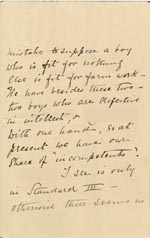 mistake to suppose a boy
who is fit for nothing
else is fit for farm work –
We have besides these two –
two boys who are defective
in intellect, &
with one hand; so at
present we have our
share of "incompetents"!
I see is only
in Standard III –
otherwise there seems no